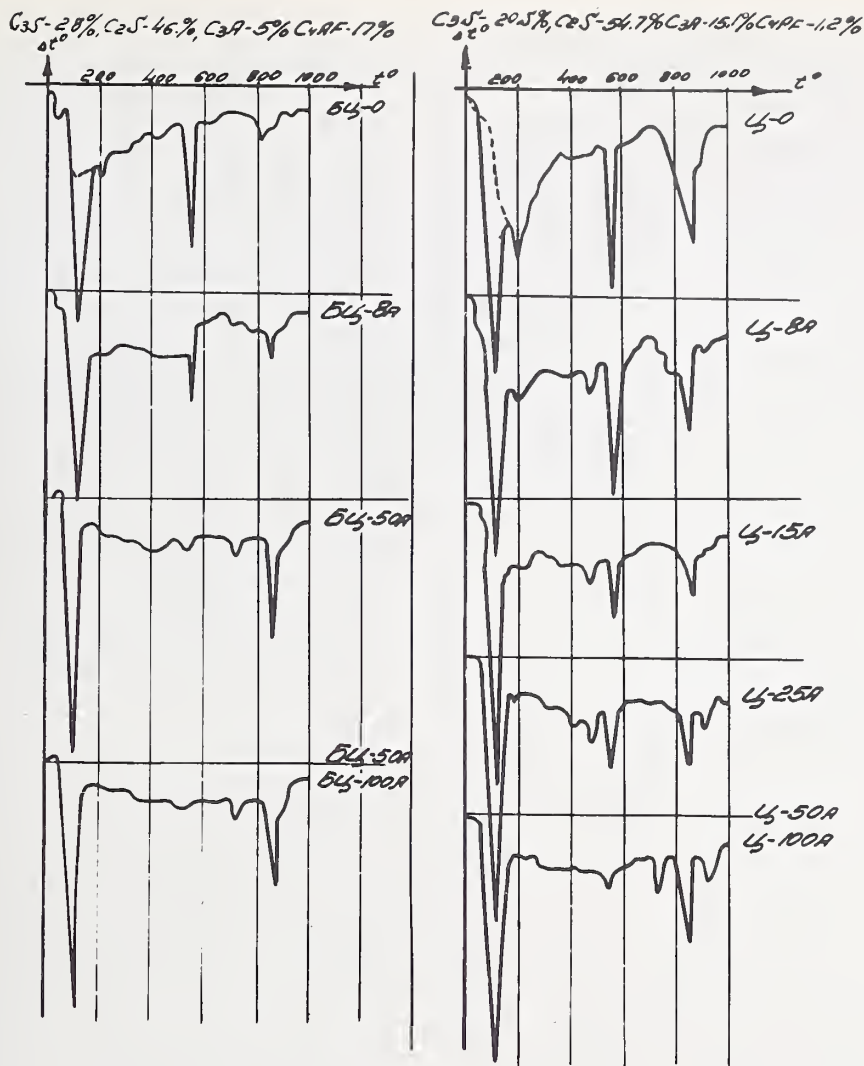 C3S-28%, C2S-46.%, C3A-5% C4AF-17%
Δt° 200 400 600 800 1000 t°
БЦ-0
БЦ-8А
БЦ-50А
БЦ-50А
БЦ-100А
C3S-20.5%, C2S-54.7% C3A-15.1% C4AF-1.2%
Δt° 200 400 600 800 1000 t°
Ц-0
Ц-8А
Ц-15А
Ц-25А
Ц-50А
Ц-100А